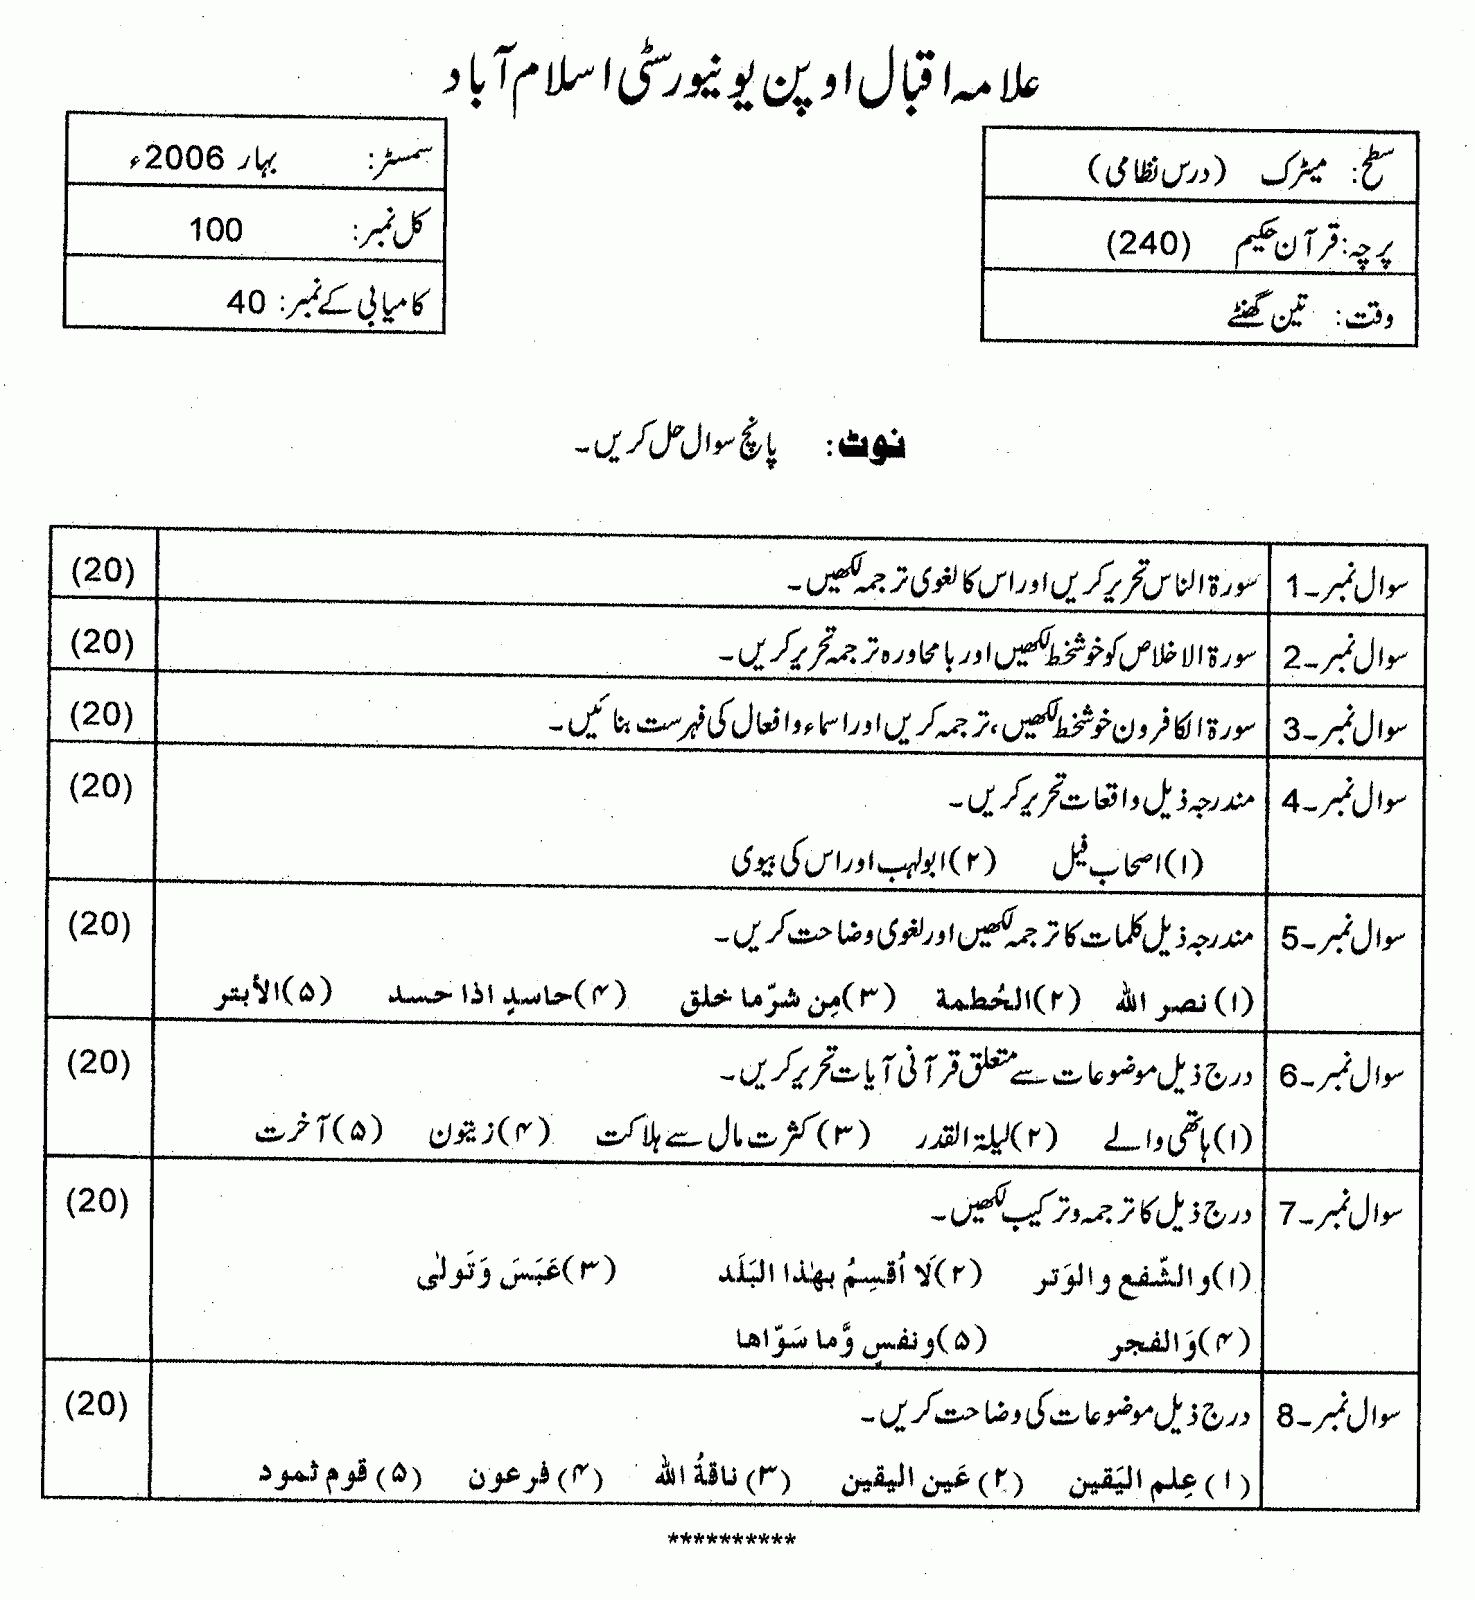 علامہ اقبال اوپن یونیورسٹی اسلام آباد
سطح: میٹرک (درس نظامی)
پرچہ: قرآن حکیم (240)
وقت: تین گھنٹے
سمسٹر: بہار 2006ء
کل نمبر: 100
کامیابی کے نمبر: 40
نوٹ: پانچ سوال حل کریں۔
سوال نمبر۔1 سورۃ الناس تحریر کریں اور اس کا لغوی ترجمہ لکھیں۔ (20)
سوال نمبر۔2 سورۃ الاخلاص کو خوشخط لکھیں اور بامحاورہ ترجمہ تحریر کریں۔ (20)
سوال نمبر۔3 سورۃ الکافرون خوشخط لکھیں، ترجمہ کریں اور اسماء و افعال کی فہرست بنائیں۔ (20)
سوال نمبر۔4 مندرجہ ذیل واقعات تحریر کریں۔ (20)
(۱) اصحاب فیل (۲) ابولہب اور اس کی بیوی
سوال نمبر۔5 مندرجہ ذیل کلمات کا ترجمہ لکھیں اور لغوی وضاحت کریں۔ (20)
(۱) نصر اللہ (۲) الحُطمة (۳) مِن شرّ ما خلق (۴) حاسدٍ اذا حسد (۵) الأبتر
سوال نمبر۔6 درج ذیل موضوعات سے متعلق قرآنی آیات تحریر کریں۔ (20)
(۱) ہاتھی والے (۲) لیلۃ القدر (۳) کثرت مال سے ہلاکت (۴) زیتون (۵) آخرت
سوال نمبر۔7 درج ذیل کا ترجمہ و ترکیب لکھیں۔ (20)
(۱) والشّفع والوَتر (۲) لَا اُقسِمُ بھٰذا البَلَد (۳) عَبَسَ وَتَولیٰ
(۴) وَالفجر (۵) ونفسٍ وَّما سَوّاها
سوال نمبر۔8 درج ذیل موضوعات کی وضاحت کریں۔ (20)
(۱) عِلم الیَقین (۲) عَین الیقین (۳) ناقةُ اللہ (۴) فرعون (۵) قوم ثمود
**********